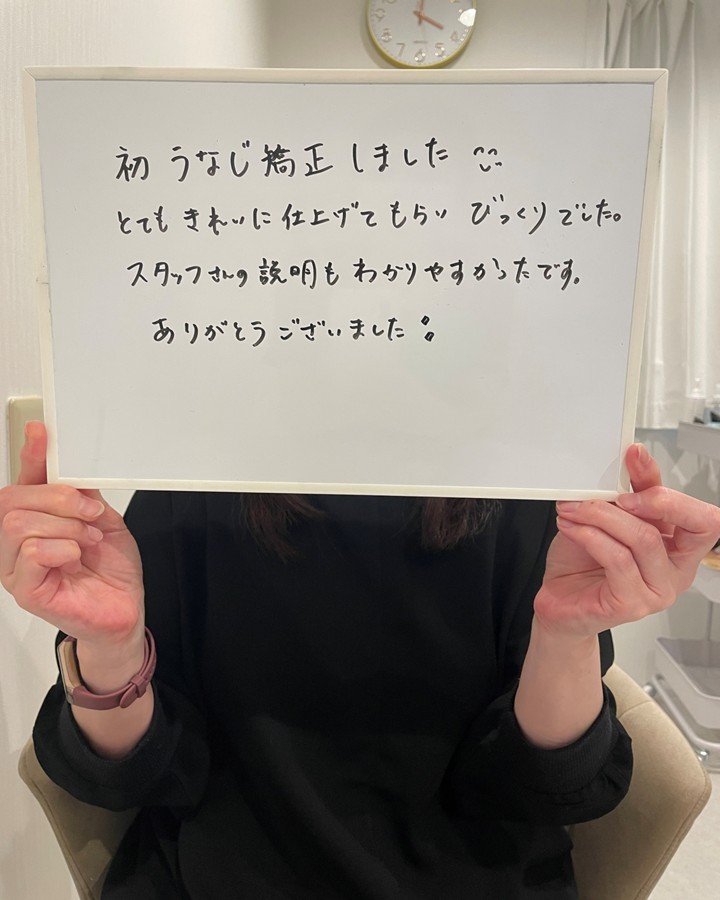 初 うなじ矯正 しました
とても きれいに 仕上げて もらい びっくりでした。
スタッフさんの 説明も わかりやすかったです。
ありがとう ございました